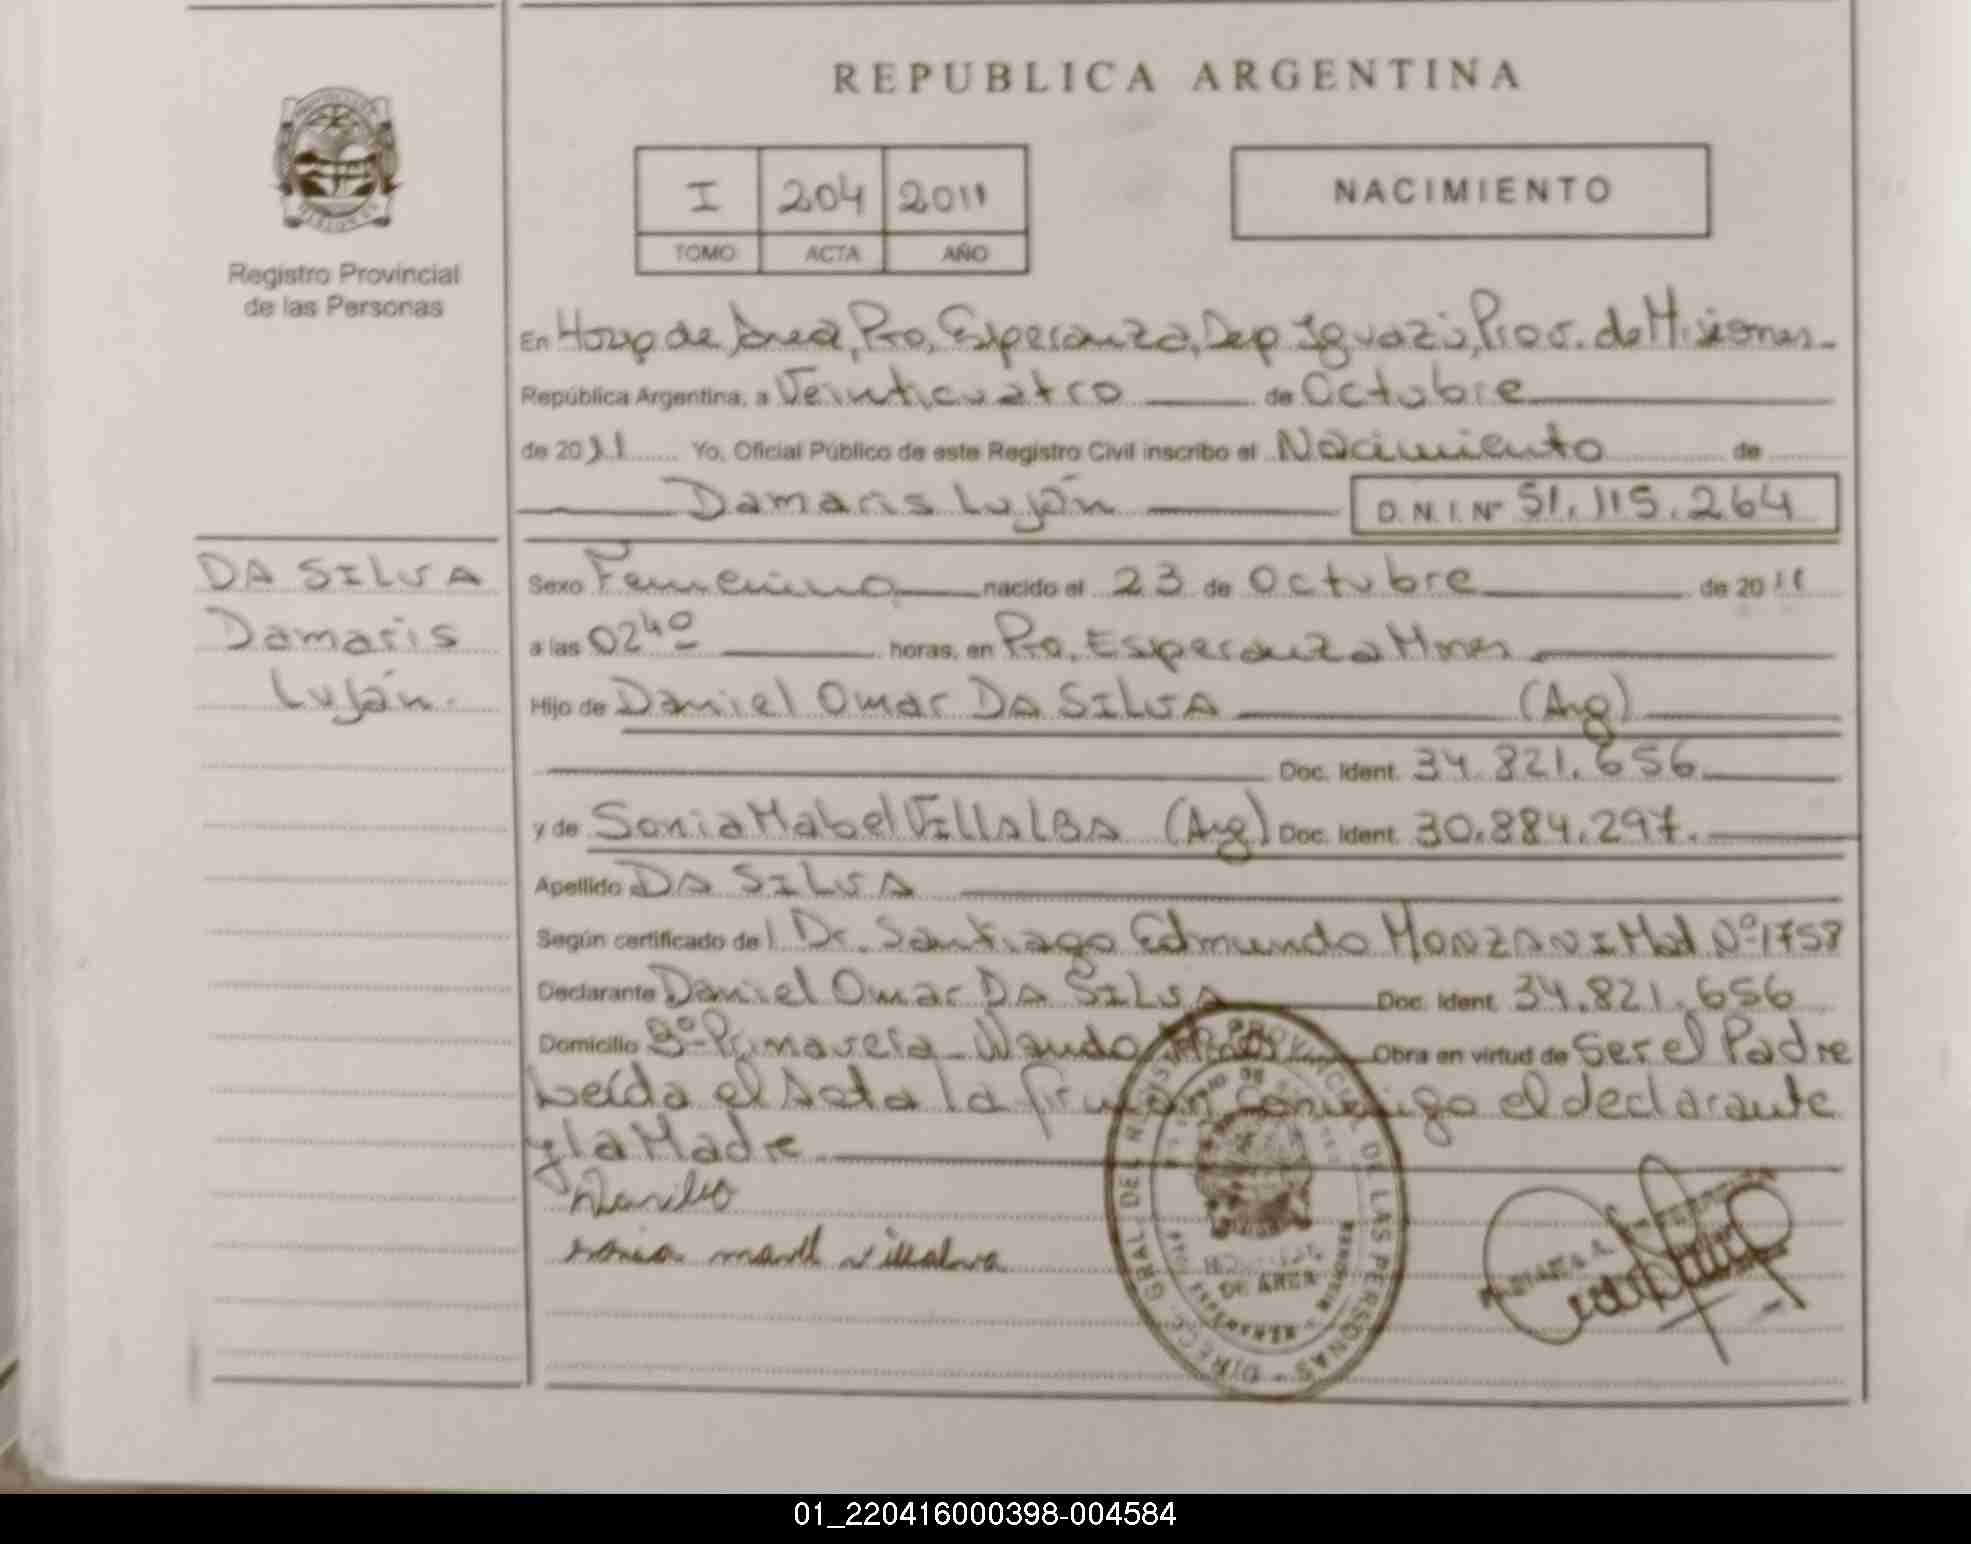 REPUBLICA ARGENTINA
I 204 2011
TOMO ACTA AÑO
NACIMIENTO
Registro Provincial
de las Personas
En Hosp de Área, Pto. Esperanza, Dep Iguazú, Prov. de Misiones.
República Argentina, a Veinticuatro de Octubre
de 2011 Yo, Oficial Público de este Registro Civil inscribo el Nacimiento de
Damaris Luján D.N.I. Nº 51.115.264
DA SILVA
Damaris
Luján.
Sexo Femenino nacido el 23 de Octubre de 2011
a las 0240 horas, en Pto. Esperanza Mnes
Hijo de Daniel Omar DA SILVA (Arg)
Doc. Ident. 34.821.656
y de Sonia Mabel VILLALBA (Arg) Doc. Ident. 30.884.297.
Apellido DA SILVA
Según certificado del Dr. Santiago Edmundo MONZANI Mat Nº 1758
Declarante Daniel Omar DA SILVA Doc. Ident. 34.821.656
Domicilio Bº Primavera - Wanda Obra en virtud de Ser el Padre
Leída el Acta la firman conmigo el declarante
y la Madre
DIRECC. GRAL. DEL REGISTRO PROVINCIAL DE LAS PERSONAS
DE AREA
01_220416000398-004584